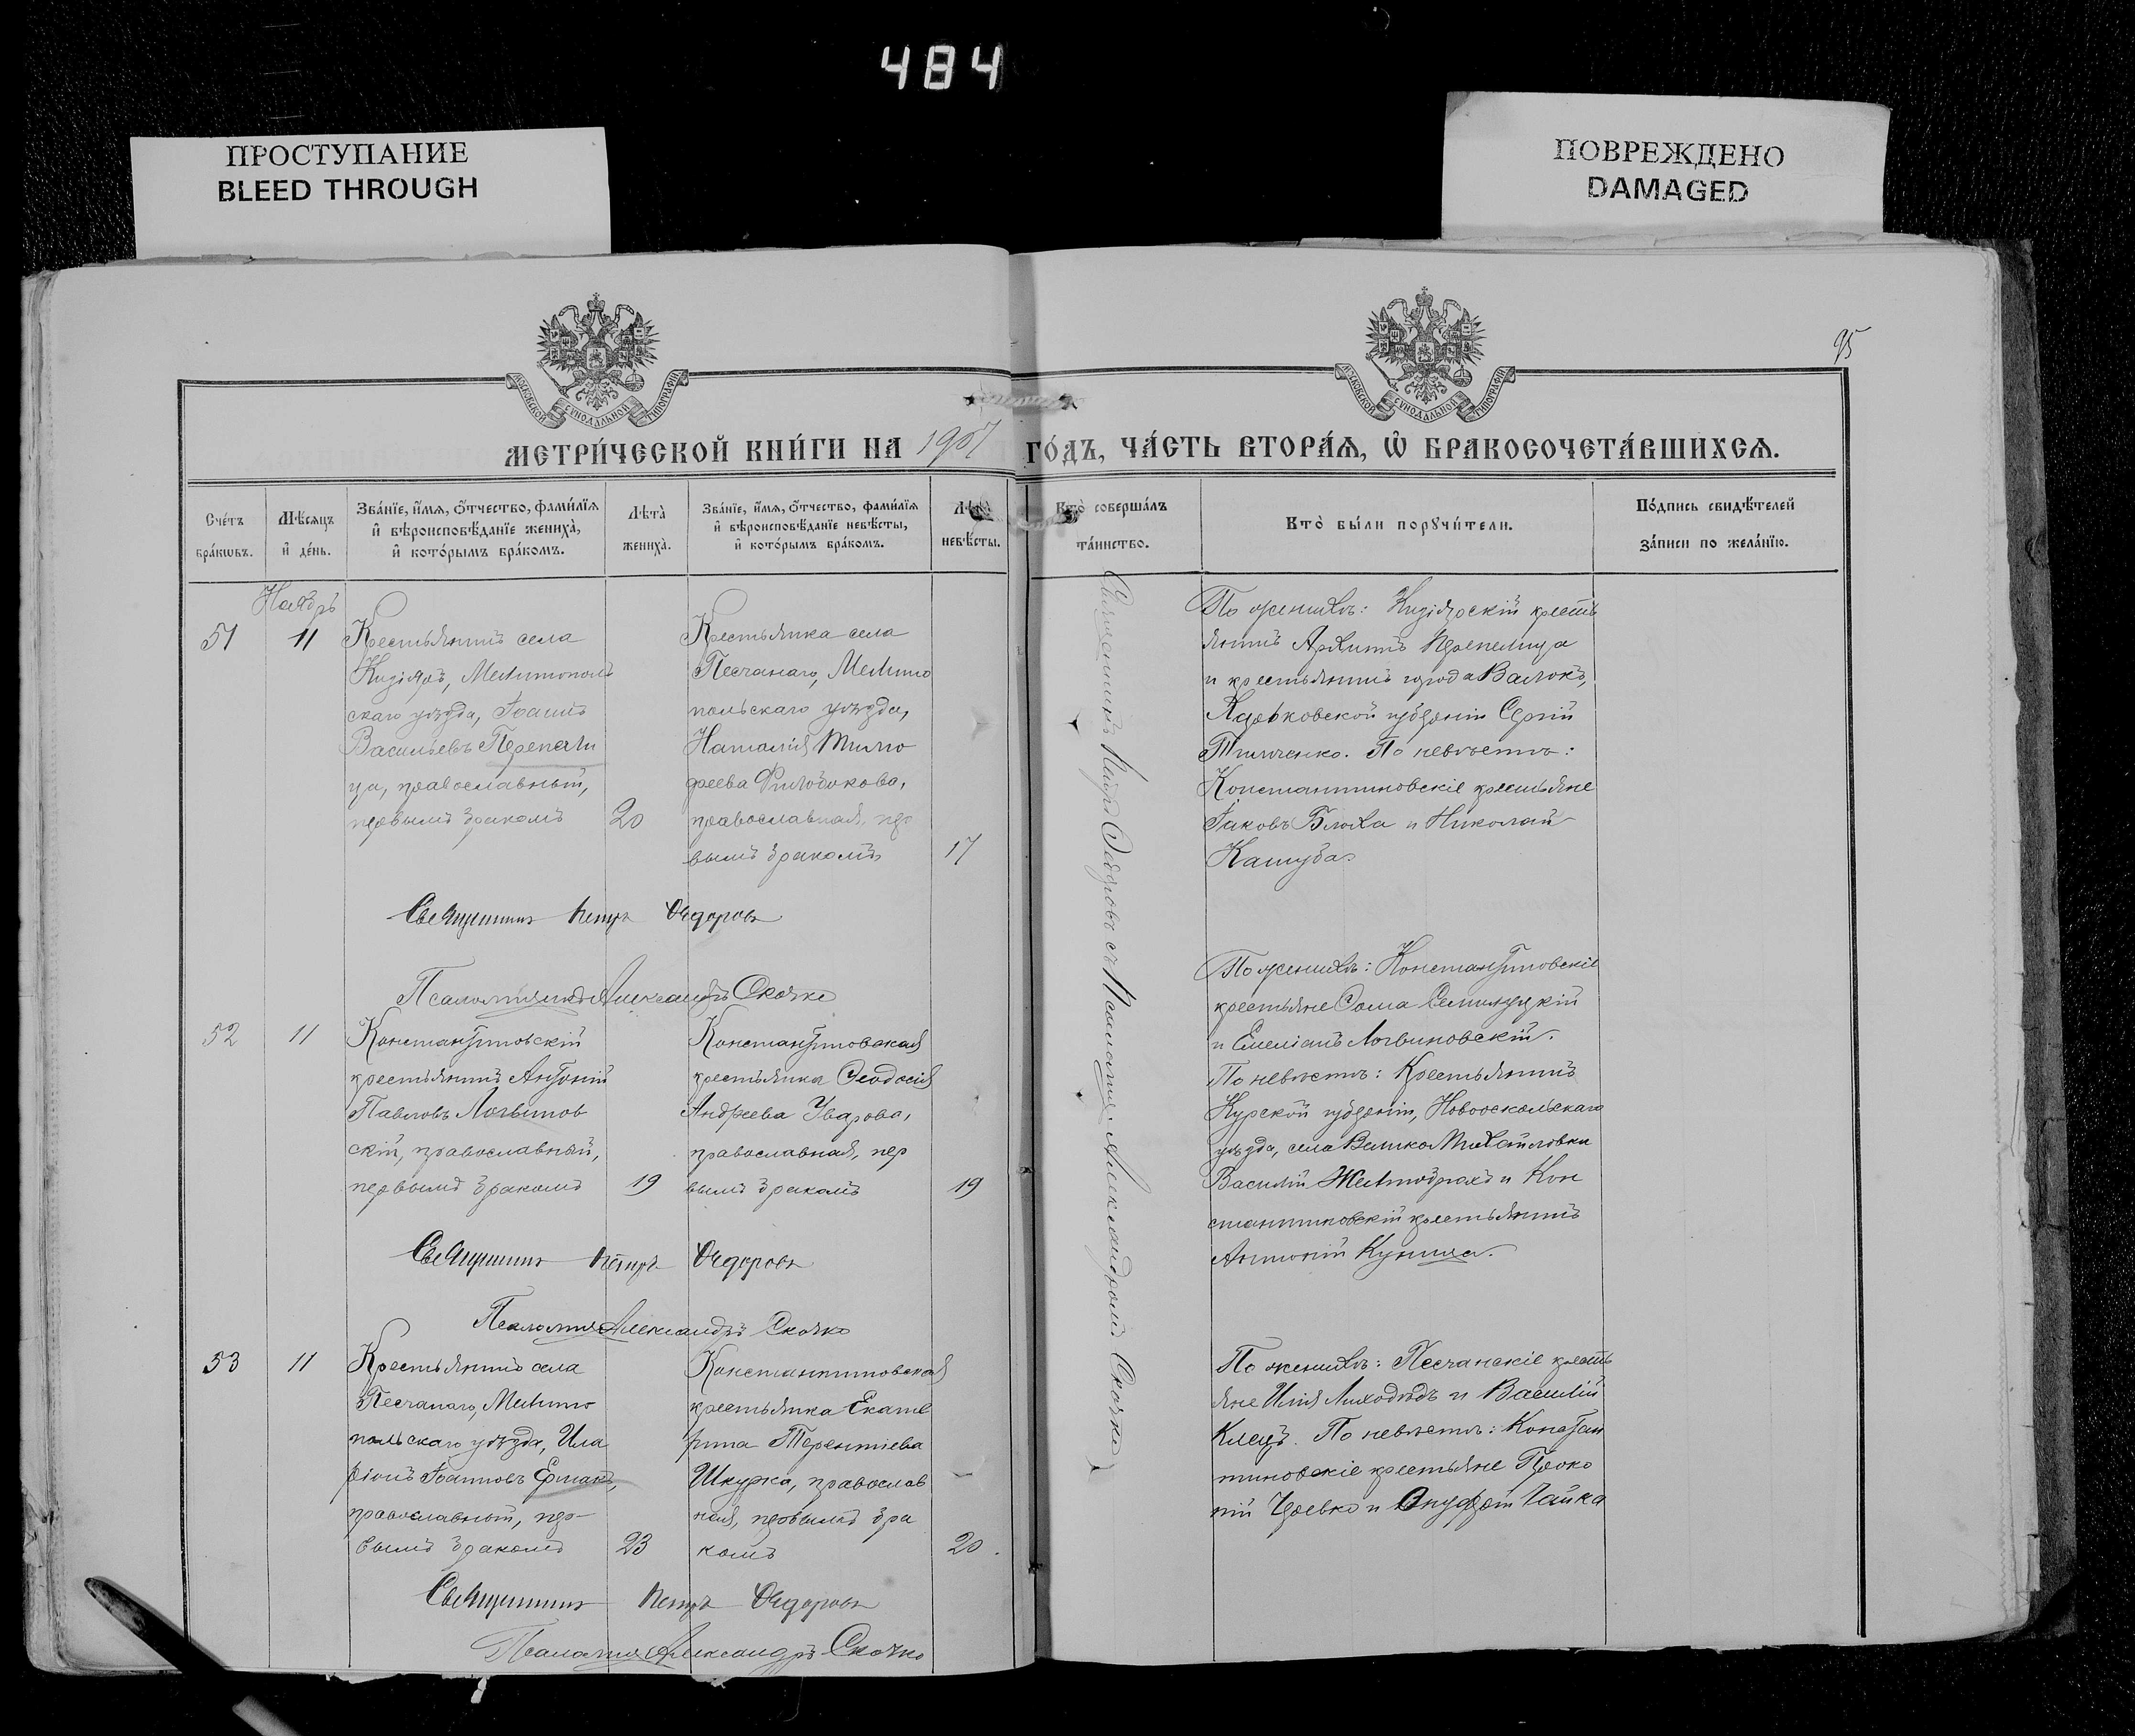 484
ПРОСТУПАНИЕ
BLEED THROUGH
ПОВРЕЖДЕНО
DAMAGED
95
МОСКОВСКОЙ СѴНОДАЛЬНОЙ ТИПОГРАФІИ
МОСКОВСКОЙ СѴНОДАЛЬНОЙ ТИПОГРАФІИ
МЕТРИ́ЧЕСКОЙ КНИ́ГИ НА 1907 ГО́ДЪ, ЧА́СТЬ ВТОРА́Ѧ, Ѡ҆ БРАКОСОЧЕТА́ВШИХСѦ.
Сче́тъ
бра́кѡвъ.
Мѣ́сѧцъ
и҆ де́нь.
Зва́нїе, и҆́мѧ, ѻ҆́тчество, фами́лїѧ
и҆ вѣроисповѣ́данїе жениха̀,
и҆ кото́рымъ бра́комъ.
Лѣта̀
жениха̀.
Зва́нїе, и҆́мѧ, ѻ҆́тчество, фами́лїѧ
и҆ вѣроисповѣ́данїе невѣ́сты,
и҆ кото́рымъ бра́комъ.
Лѣта̀
невѣ́сты.
Кто̀ соверша́лъ
та́инство.
Кто̀ бы́ли порꙋчи́тели.
По́дпись свидѣ́телей
за́писи по жела́нїю.
Ноябрь
51
11
Крестьянинъ села
Кизіяръ, Мелитополь
скаго уѣзда, Іоаннъ
Васильевъ Перепели
ца, православный,
первымъ бракомъ
20
Крестьянка села
Песчанаго, Мелито
польскаго уѣзда,
Наталія Тимо
феева
православная, пер
вымъ бракомъ
17
Священникъ Петръ Ѳедоровъ съ Псаломщ. Александромъ Скочко
По женихѣ: Кизіярскій кресть
янинъ Архипъ Перепелица
и крестьянинъ города Валокъ,
Харьковской губерніи Сергій
Тимченко. По невѣстѣ:
Константиновскіе крестьяне
Іаковъ Блоха и Николай
Кашуба.
Священникъ Петръ Ѳедоровъ
Псаломщикъ Александръ Скочко
52
11
Константиновскій
крестьянинъ Антоній
Павловъ Логвинов
скій, православный,
первымъ бракомъ
19
Константиновская
крестьянка Ѳеодосія
Андреева Уварова,
православная, пер
вымъ бракомъ
19
По женихѣ: Константиновскіе
крестьяне Ѳома
и Емеліанъ Логвиновскій.
По невѣстѣ: Крестьянинъ
Курской губерніи, Новооскольскаго
уѣзда, села Велико Михайловки
Василій и Кон
стантиновскій крестьянинъ
Антоній
Священникъ Петръ Ѳедоровъ
Псаломщ Александръ Скочко
53
11
Крестьянинъ села
Песчанаго, Мелито
польскаго уѣзда, Ила
ріонъ Іоанновъ Ермакъ,
православный, пер-
вымъ бракомъ
23
Константиновская
крестьянка Екате
рина Терентіева
Шкурка, православ
ная, первымъ бра
комъ
20.
По женихѣ: Песчанскіе кресть
яне Илія Лиходѣдъ и Василій
Клецъ. По невѣстѣ: Констан
тиновскіе крестьяне Проко
пій и Онуфрій Гайка
Священникъ Петръ Ѳедоровъ
Псаломщ Александръ Скочко